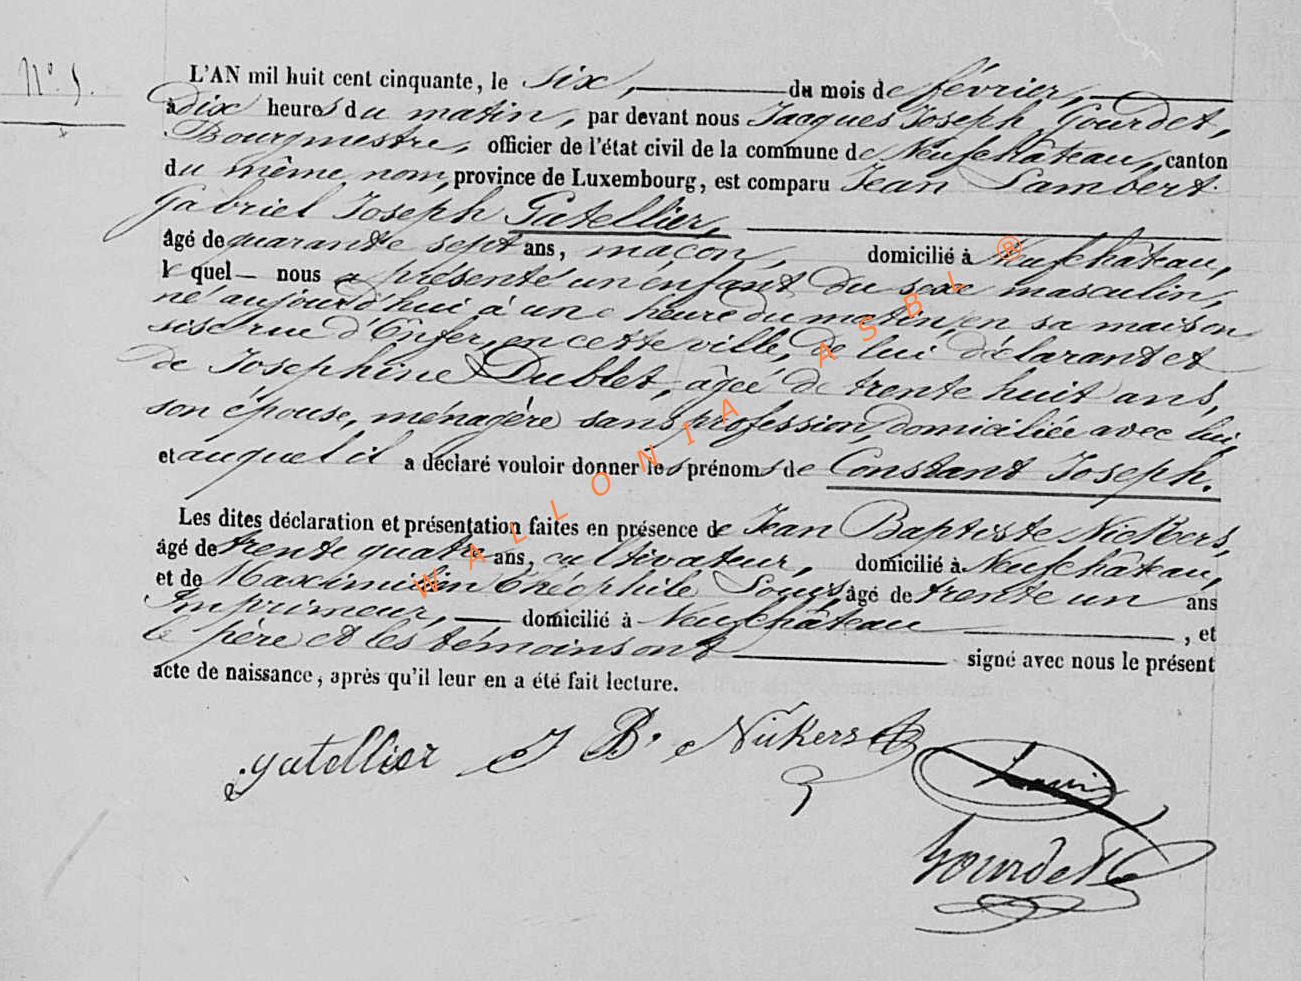 N°. 5.
L'AN mil huit cent cinquante, le six, du mois de février,
à dix heures du matin, par devant nous Jacques Joseph Gourdet,
Bourgmestre, officier de l'état civil de la commune de Neufchâteau, canton
du même nom, province de Luxembourg, est comparu Jean Lambert
Gabriel Joseph Gatellier,
âgé de quarante sept ans, maçon, domicilié à Neufchâteau,
le quel nous a présenté un enfant du sexe masculin,
né aujourd'hui à une heure du matin, en sa maison
sise rue d'Enfer, en cette ville, de lui déclarant et
de Josephine Dublet, âgée de trente huit ans,
son épouse, ménagère sans profession, domiciliée avec lui,
et auquel il a déclaré vouloir donner les prénoms de Constant Joseph.
Les dites déclaration et présentation faites en présence de Jean Baptiste Nickers,
âgé de trente quatre ans, cultivateur, domicilié à Neufchâteau,
et de Maximilien Théophile Louis, âgé de trente un ans
Imprimeur, domicilié à Neufchâteau, et
le père et les témoins ont signé avec nous le présent
acte de naissance, après qu'il leur en a été fait lecture.
gatellier J B. Nickers Louis
Gourdet
WALLONIA ASBL ®